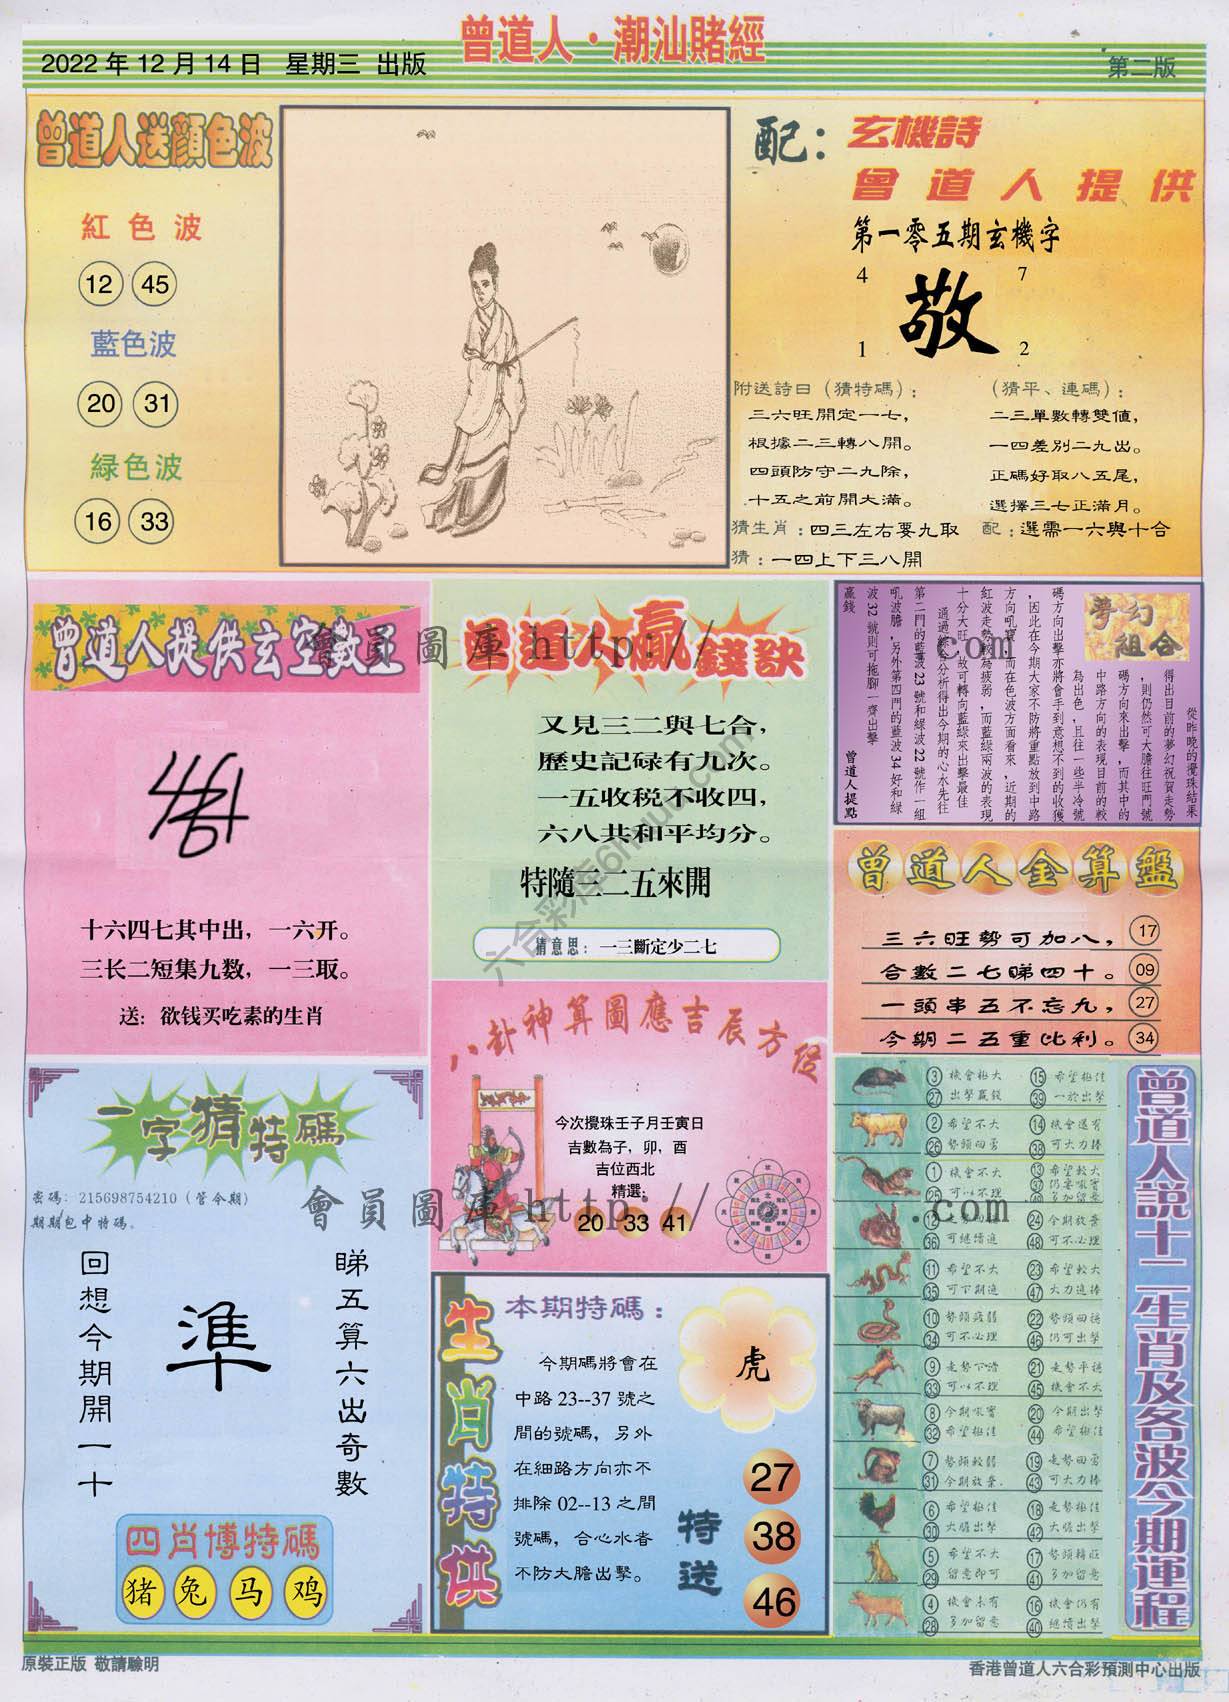 曾道人·潮汕賭經
2022 年 12 月 14 日 星期三 出版
第二版
曾道人送顏色波
紅色波
12 45
藍色波
20 31
緑色波
16 33
配：玄機詩
曾道人提供
第一零五期玄機字
4 7
敬
1 2
附送詩曰（猜特碼）：
三六旺開定一七，
根據二三轉八開。
四頭防守二九除，
十五之前開大滿。
猜生肖：四三左右要九取
猜：一四上下三八開
（猜平、連碼）：
二三單數轉雙値，
一四差別二九出。
正碼好取八五尾，
選擇三七正滿月。
配：選需一六與十合
曾道人提供玄空數王
十六四七其中出，一六开。
三长二短集九数，一三取。
送：欲钱买吃素的生肖
曾道人贏錢訣
又見三二與七合，
歷史記碌有九次。
一五收税不收四，
六八共和平均分。
特隨三二五來開
猜意思：一三斷定少二七
夢幻
組合
從昨晚的攪珠結果
得出目前的夢幻祝賀走勢
，則仍然可大膽往旺門號
碼方向來出擊，而其中的
中路方向的表現目前的較
為出色，且往一些半冷號
碼方向出擊亦將會手到意想不到的收獲
，因此在今期大家不防將重點放到中路
方向吼寶，而在色波方面看來，近期的
紅波走勢較為疲弱，而藍綠兩波的表現
十分大旺，故可轉向藍綠來出擊最佳
通過綜合分析得出今期的心水先往
第二門的藍波 23 號和緑波 22 號作一組
吼波膽，另外第四門的藍波 34 好和緑
波 32 號則可拖腳一齊出擊
贏錢
曾道人提點
曾道人金算盤
三六旺勢可加八， 17
合數二七睇四十。 09
一頭串五不忘九， 27
今期二五重比利。 34
八卦神算圖應吉辰方位
今次攪珠壬子月壬寅日
吉數為子，卯，酉
吉位西北
精選:
20 33 41
一字猜特碼
密碼：215698754210（管今期）
期期包中特碼。
睇五算六出奇數
準
回想今期開一十
四肖博特碼
猪 兔 马 鸡
生肖特供
本期特碼：
今期碼將會在
中路 23--37 號之
間的號碼，另外
在細路方向亦不
排除 02--13 之間
號碼，合心水者
不防大膽出擊。
虎
特送
27
38
46
曾道人説十二生肖及各波今期運程
3 機會極大 15 希望極佳
27 出擊贏錢 39 一於出擊
2 希望不大 14 機會還有
26 勢頭回勇 38 可大力捧
1 機會不大 13 希望較大
25 可以不理 37 仍要吼實
49 多加留意
12 24 今期放棄
36 可繼續追 48 可不必理
11 希望不大 23 希望較大
35 可下期追 47 大力追捧
10 勢頭疲弱 22 勢頭回穩
34 可不必理 46 仍可出擊
9 走勢下滑 21 走勢平穩
33 可以不理 45 機會不大
8 今期吼實 20 今期出擊
32 希望極佳 44 希望極佳
7 勢頭較弱 19 走勢回勇
31 今期放棄. 43 可大力捧
6 希望極佳 18 走勢極佳
30 大膽出擊 42 大膽出擊
5 希望不大 17 勢頭精旺
29 留意即可 41 多加留意
4 機會未有 16 機會仍有
28 多加留意 40 繼續出擊
會員圖庫 http:// .com
會員圖庫 http:// .com
六合彩库6huu.com
原裝正版 敬請驗明
香港曾道人六合彩預測中心出版